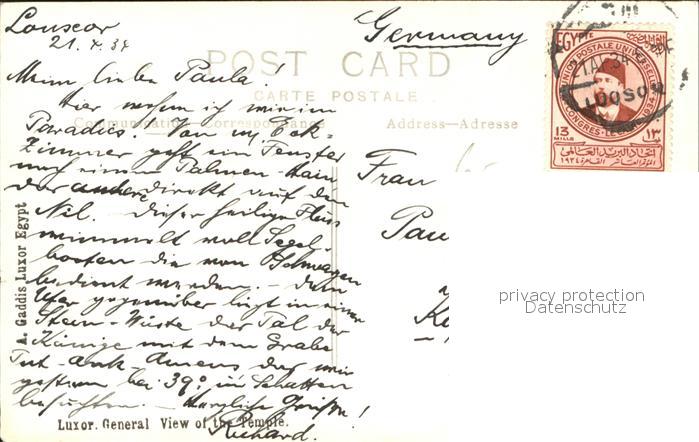 Louxor
21. 4. 34
Germany
POST CARD
CARTE POSTALE
Communication—Correspondance
Address—Adresse
Mein liebe Paula!
Hier wohn ich wie im
Paradies. Von m. Eck-
Zimmer geht ein Fenster
nach einem Palmen-hain
der andere direkt auf den
Nil. dieser heilige Fluss
wimmelt voll Segel-
booten die von Schwarzen
bedient werden. – dem
Ufer gegenüber liegt in einer
Stein-Wüste das Tal der
Könige mit dem Grabe
Tut-ank-Amens das wir
gestern bei 39° im Schatten
besuchten. – Herzliche Grüsse!
Richard.
Frau
Pau
EGYPTE
UNION POSTALE UNIVERSELLE
CONGRES
13
MILLS
١٣
اتحاد البريد العالمى
21 AP 34
LOUXOR
privacy protection
Datenschutz
A. Gaddis Luxor Egypt
Luxor. General View of the Temple.